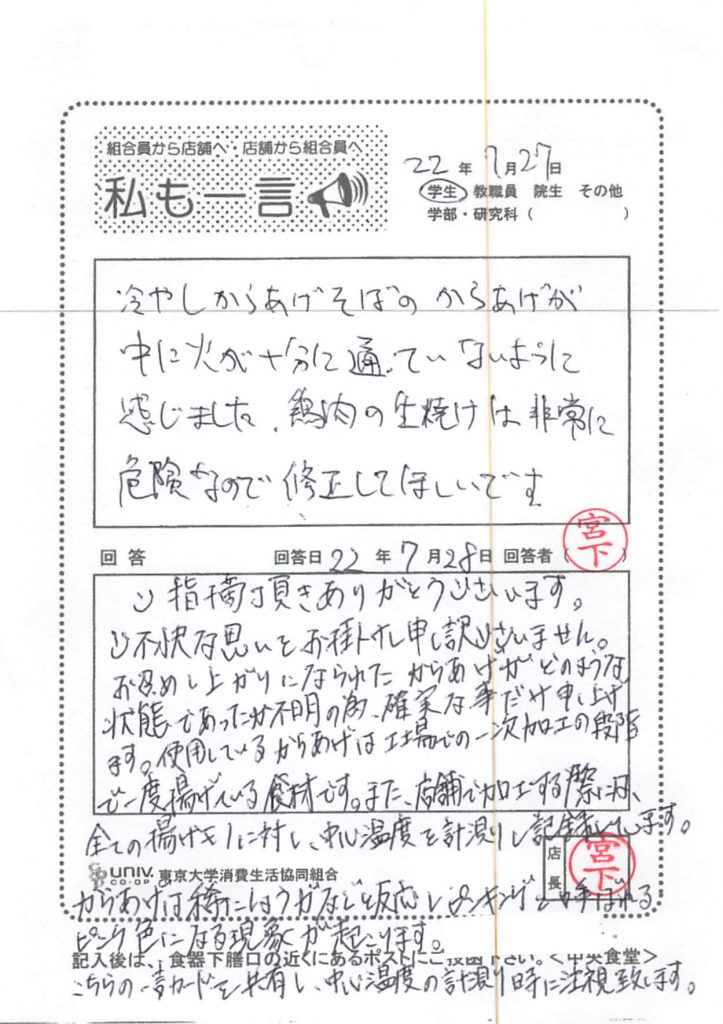 組合員から店舗へ・店舗から組合員へ
私も一言
22年7月27日
学生 教職員 院生 その他
学部・研究科（ ）
冷やしからあげそばの からあげが
中に火が十分に通っていないように
感じました。鶏肉の生焼けは非常に
危険なので修正してほしいです
回答 回答日22年7月28日 回答者（宮下）
ご指摘頂きありがとうございます。
ご不快な思いをお掛けし申し訳ございません。
お召し上がりになられたからあげがどのような
状態であったか不明の為、確実な事だけ申し上げ
ます。使用しているからあげは工場での一次加工の段階
で一度揚げている食材です。また、店舗で加工する際には、
全ての揚げキリに対し、中心温度を計測し記録しています。
UNIV. CO-OP 東京大学消費生活協同組合
店長 宮下
からあげは稀にしょうがなどと反応しピンキングと呼ばれる
ピンク色になる現象が起こります。
記入後は、食器下膳口の近くにあるポストにご投函下さい。＜中央食堂＞
こちらの一言カードを共有し、中心温度の計測時に注視致します。